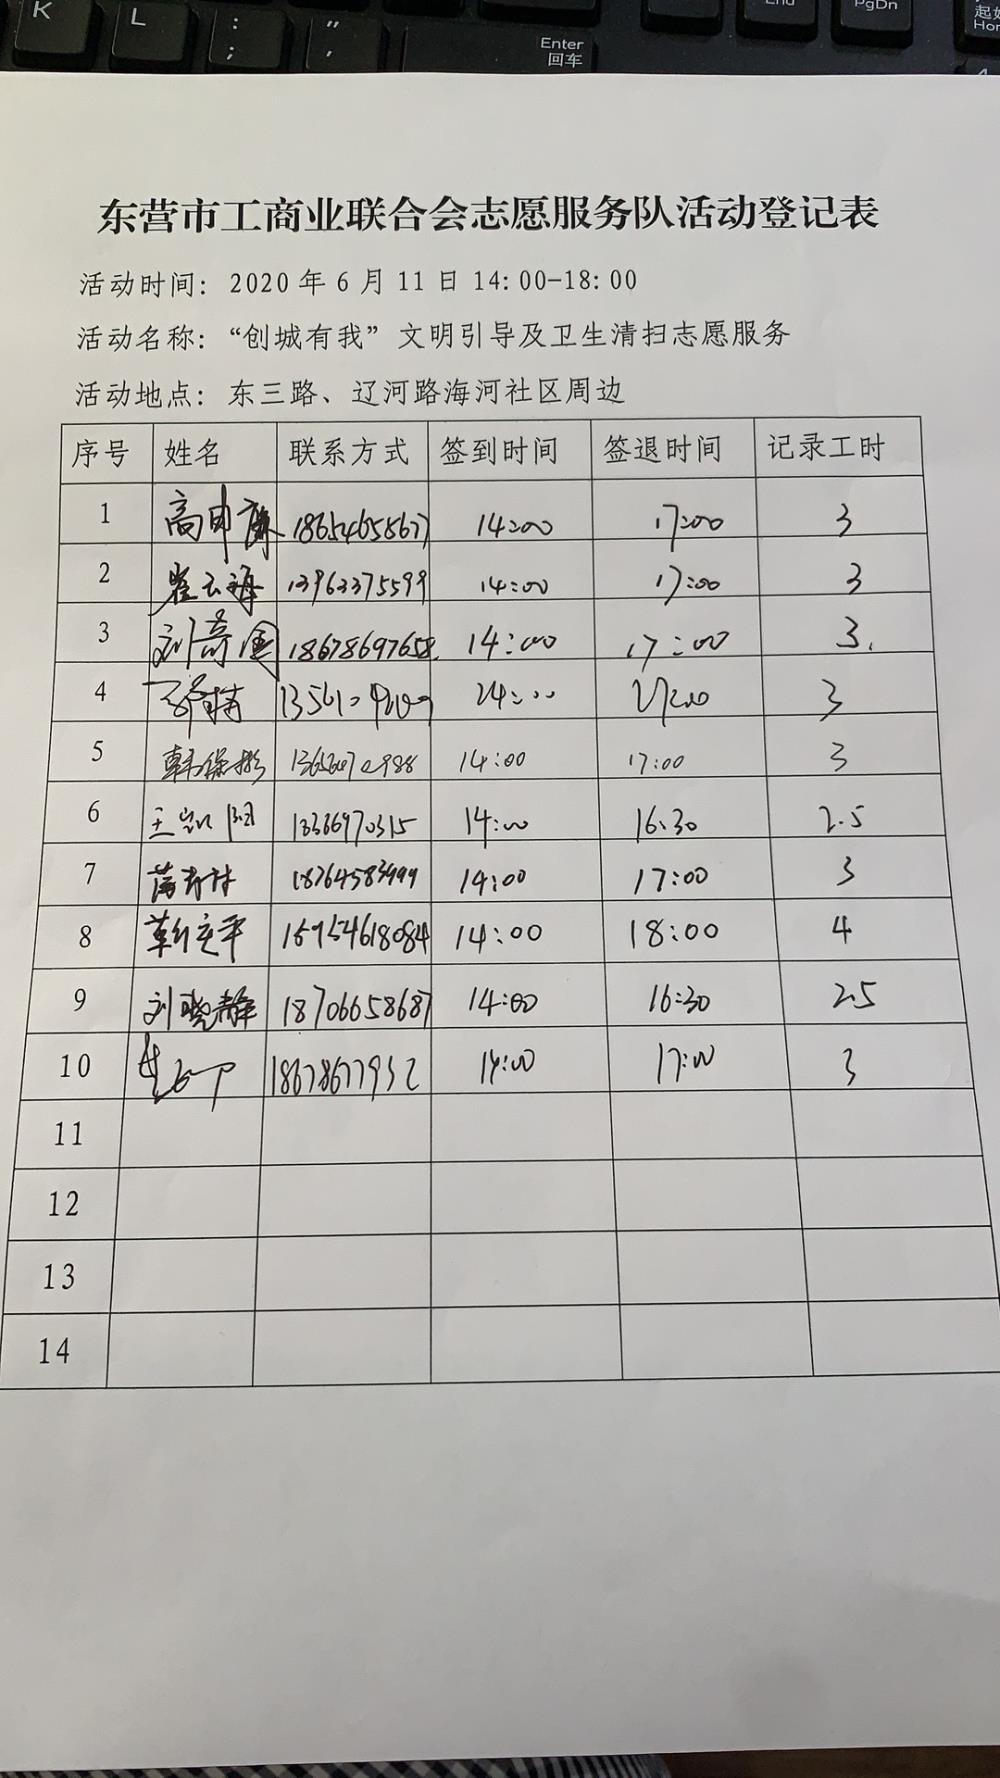 K
L
:
;
"
,
Enter
回车
End
PgDn
起始
Hom
东营市工商业联合会志愿服务队活动登记表
活动时间: 2020 年 6 月 11 日 14:00-18:00
活动名称: “创城有我” 文明引导及卫生清扫志愿服务
活动地点: 东三路、辽河路海河社区周边
序号 姓名 联系方式 签到时间 签退时间 记录工时
1 18654658677 14:00 17:00 3
2 13963375599 14:00 17:00 3
3 18678697658 14:00 17:00 3
4 3
5 14:00 17:00 3
6 13366970315 14:00 16:30 2.5
7 14:00 17:00 3
8 15954618084 14:00 18:00 4
9 刘晓静 18706658687 14:00 16:30 2.5
10 18678677952 14:00 17:00 3
11
12
13
14